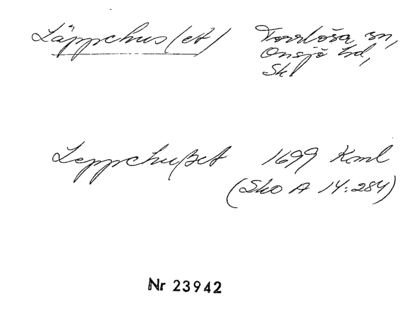 Läppchus(et) Torrlösa sn,
Onsjö hd,
Sk
Leppchußet 1699 Kml
(Sko A 14:284)
Nr 23942